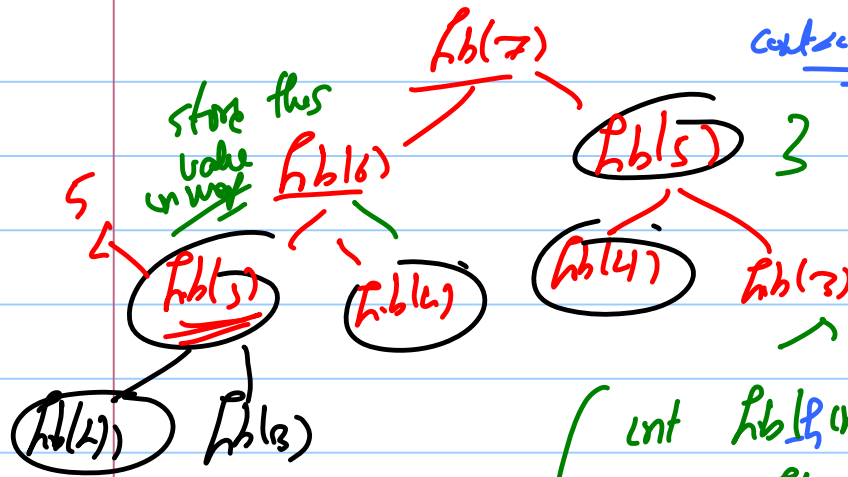 fib(7)
store this
value
in map
fib(6)
fib(5)
3
5
fib(5)
fib(4)
fib(4)
fib(3)
fib(4)
fib(3)
int fib(